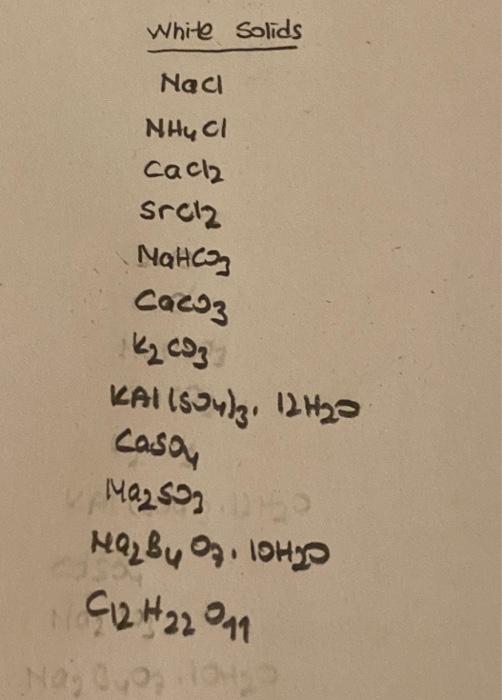 White Solids
NaCl
NH4Cl
CaCl2
SrCl2
NaHCO3
CaCO3
K2CO3
KAl(SO4)3. 12H2O
CaSO4
Na2SO3
Na2B4O7. 10H2O
C12H22O11